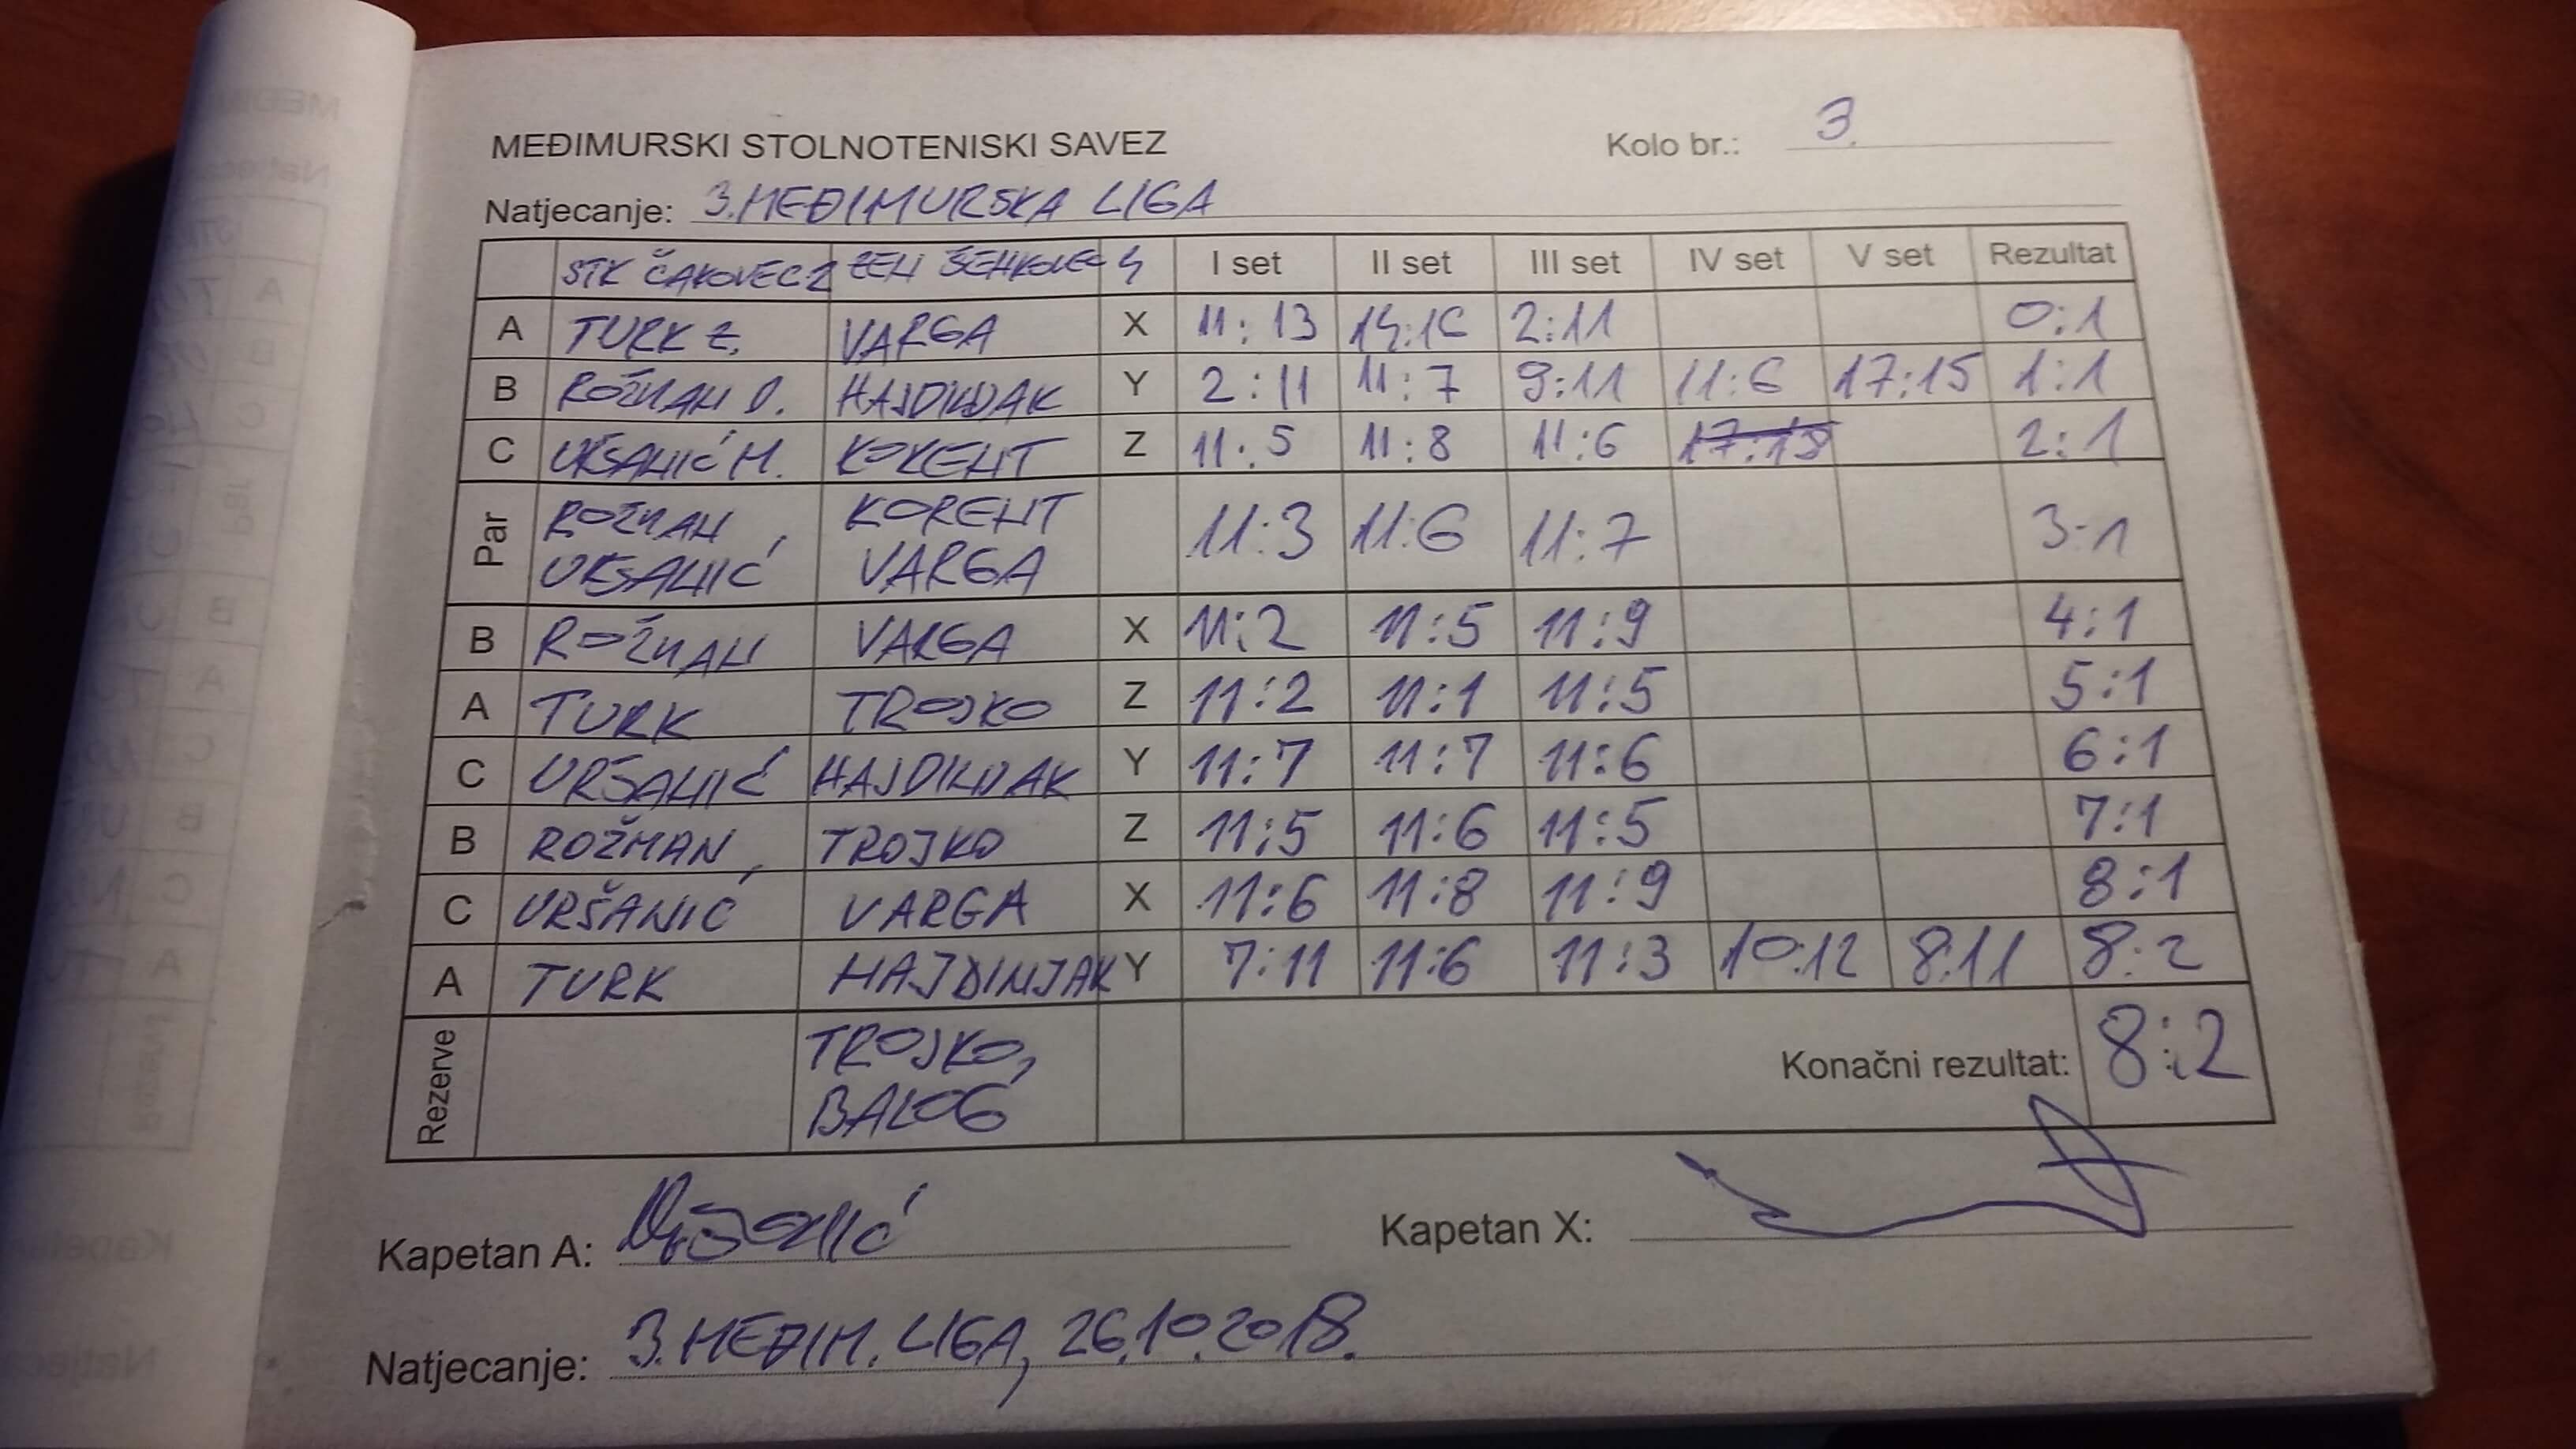 MEĐIMURSKI STOLNOTENISKI SAVEZ
Kolo br.: 3.
Natjecanje: 3. MEĐIMURSKA LIGA
STK ČAKOVEC 2 ŠENKOVEC 4 I set II set III set IV set V set Rezultat
A TURK Z. VARGA X 11:13 14:16 2:11 0:1
B ROŽMAN D. HAJDINJAK Y 2:11 11:7 9:11 11:6 17:15 1:1
C URŠANIĆ M. KORENT Z 11:5 11:8 11:6 17:15 2:1
Par ROŽMAN URŠANIĆ KORENT VARGA 11:3 11:6 11:7 3:1
B ROŽMAN VARGA X 11:2 11:5 11:9 4:1
A TURK TROJKO Z 11:2 11:1 11:5 5:1
C URŠANIĆ HAJDINJAK Y 11:7 11:7 11:6 6:1
B ROŽMAN TROJKO Z 11:5 11:6 11:5 7:1
C URŠANIĆ VARGA X 11:6 11:8 11:9 8:1
A TURK HAJDINJAK Y 7:11 11:6 11:3 10:12 8:11 8:2
Rezerve TROJKO, BALOG Konačni rezultat: 8:2
Kapetan A: Uršanić Kapetan X:
Natjecanje: 3. MEĐIM. LIGA, 26.10.2018.